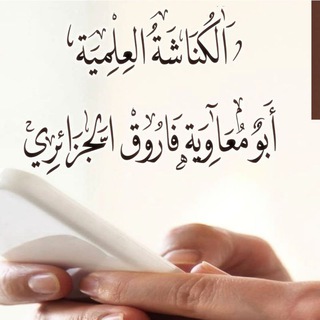 الكُنَاشَةُ العِلْمِيَّة
أَبُو مُعَاوِيَة فَارُوقْ الجَزَائِرِيّ